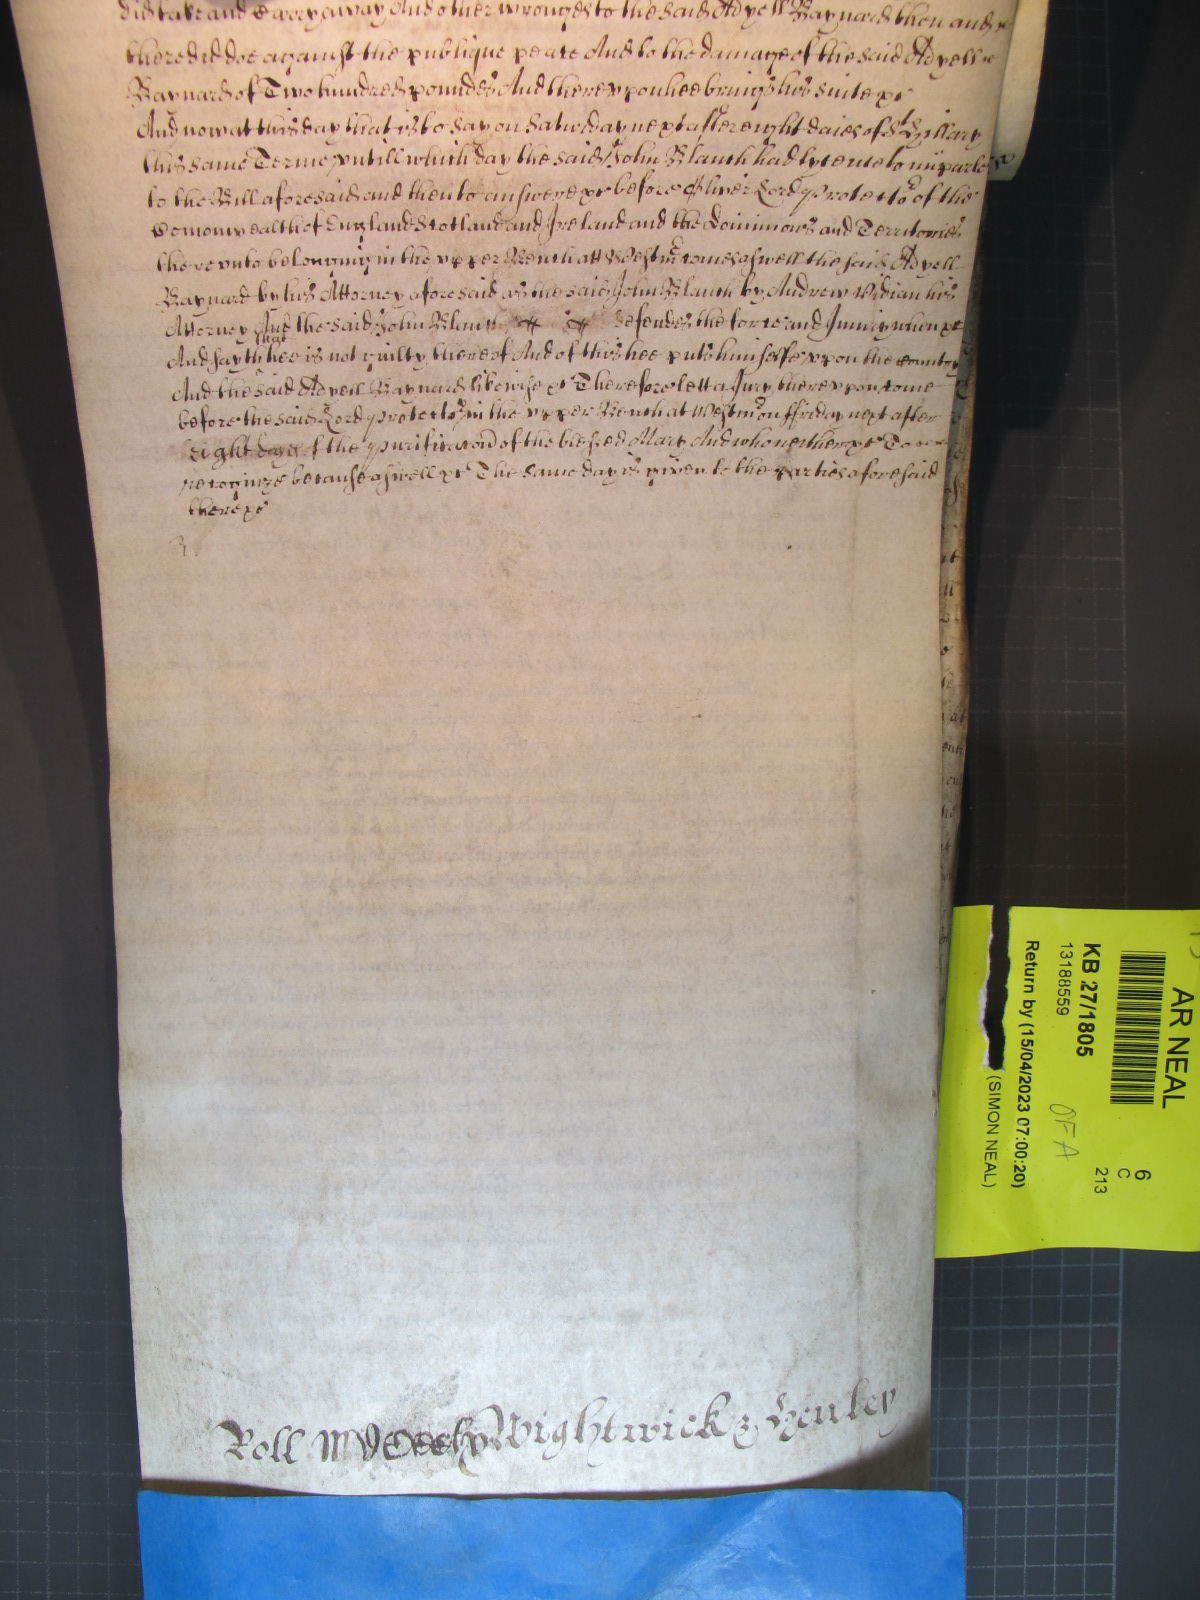 did take and Carry away And other wronges to the said Adyell Baynard then and
there did doe against the publique peace And to the damage of the said Adyell
Baynard of Two hundred poundes And thereupon hee brings his suite &c
And now at this day that is to say on Saturday next after eight daies of St Hillary
this same Terme untill which day the said John Blanch had lycence to imparle
to the Bill aforesaid and then to answere &c before Oliver Lord Protector of the
Comonwealth of England Scotland and Ireland and the Dominions and Territories
thereunto belonging in the upper Bench att Westmr comes aswell the said Adyell
Baynard by his Attorney aforesaid as the said John Blanch by Andrew Vidian his
Attorney And the said John Blanch defendes the force and Iniury when &c
And sayth that hee is not guilty thereof And of this hee puts himselfe upon the Country
And the said Adyell Baynard likewise &c Therefore lett a Jury thereupon come
before the said Lord Protector in the upper Bench at Westmr on ffriday next after
Eight dayes of the Purificacon of the blessed Mary And who neither &c To
recognize because aswell &c The same day is given to the parties aforesaid
there &c
3
Roll Wightwick & Henley
AR NEAL
6
C
213
KB 27/1805
13188559
OFA
Return by (15/04/2023 07:00:20)
(SIMON NEAL)